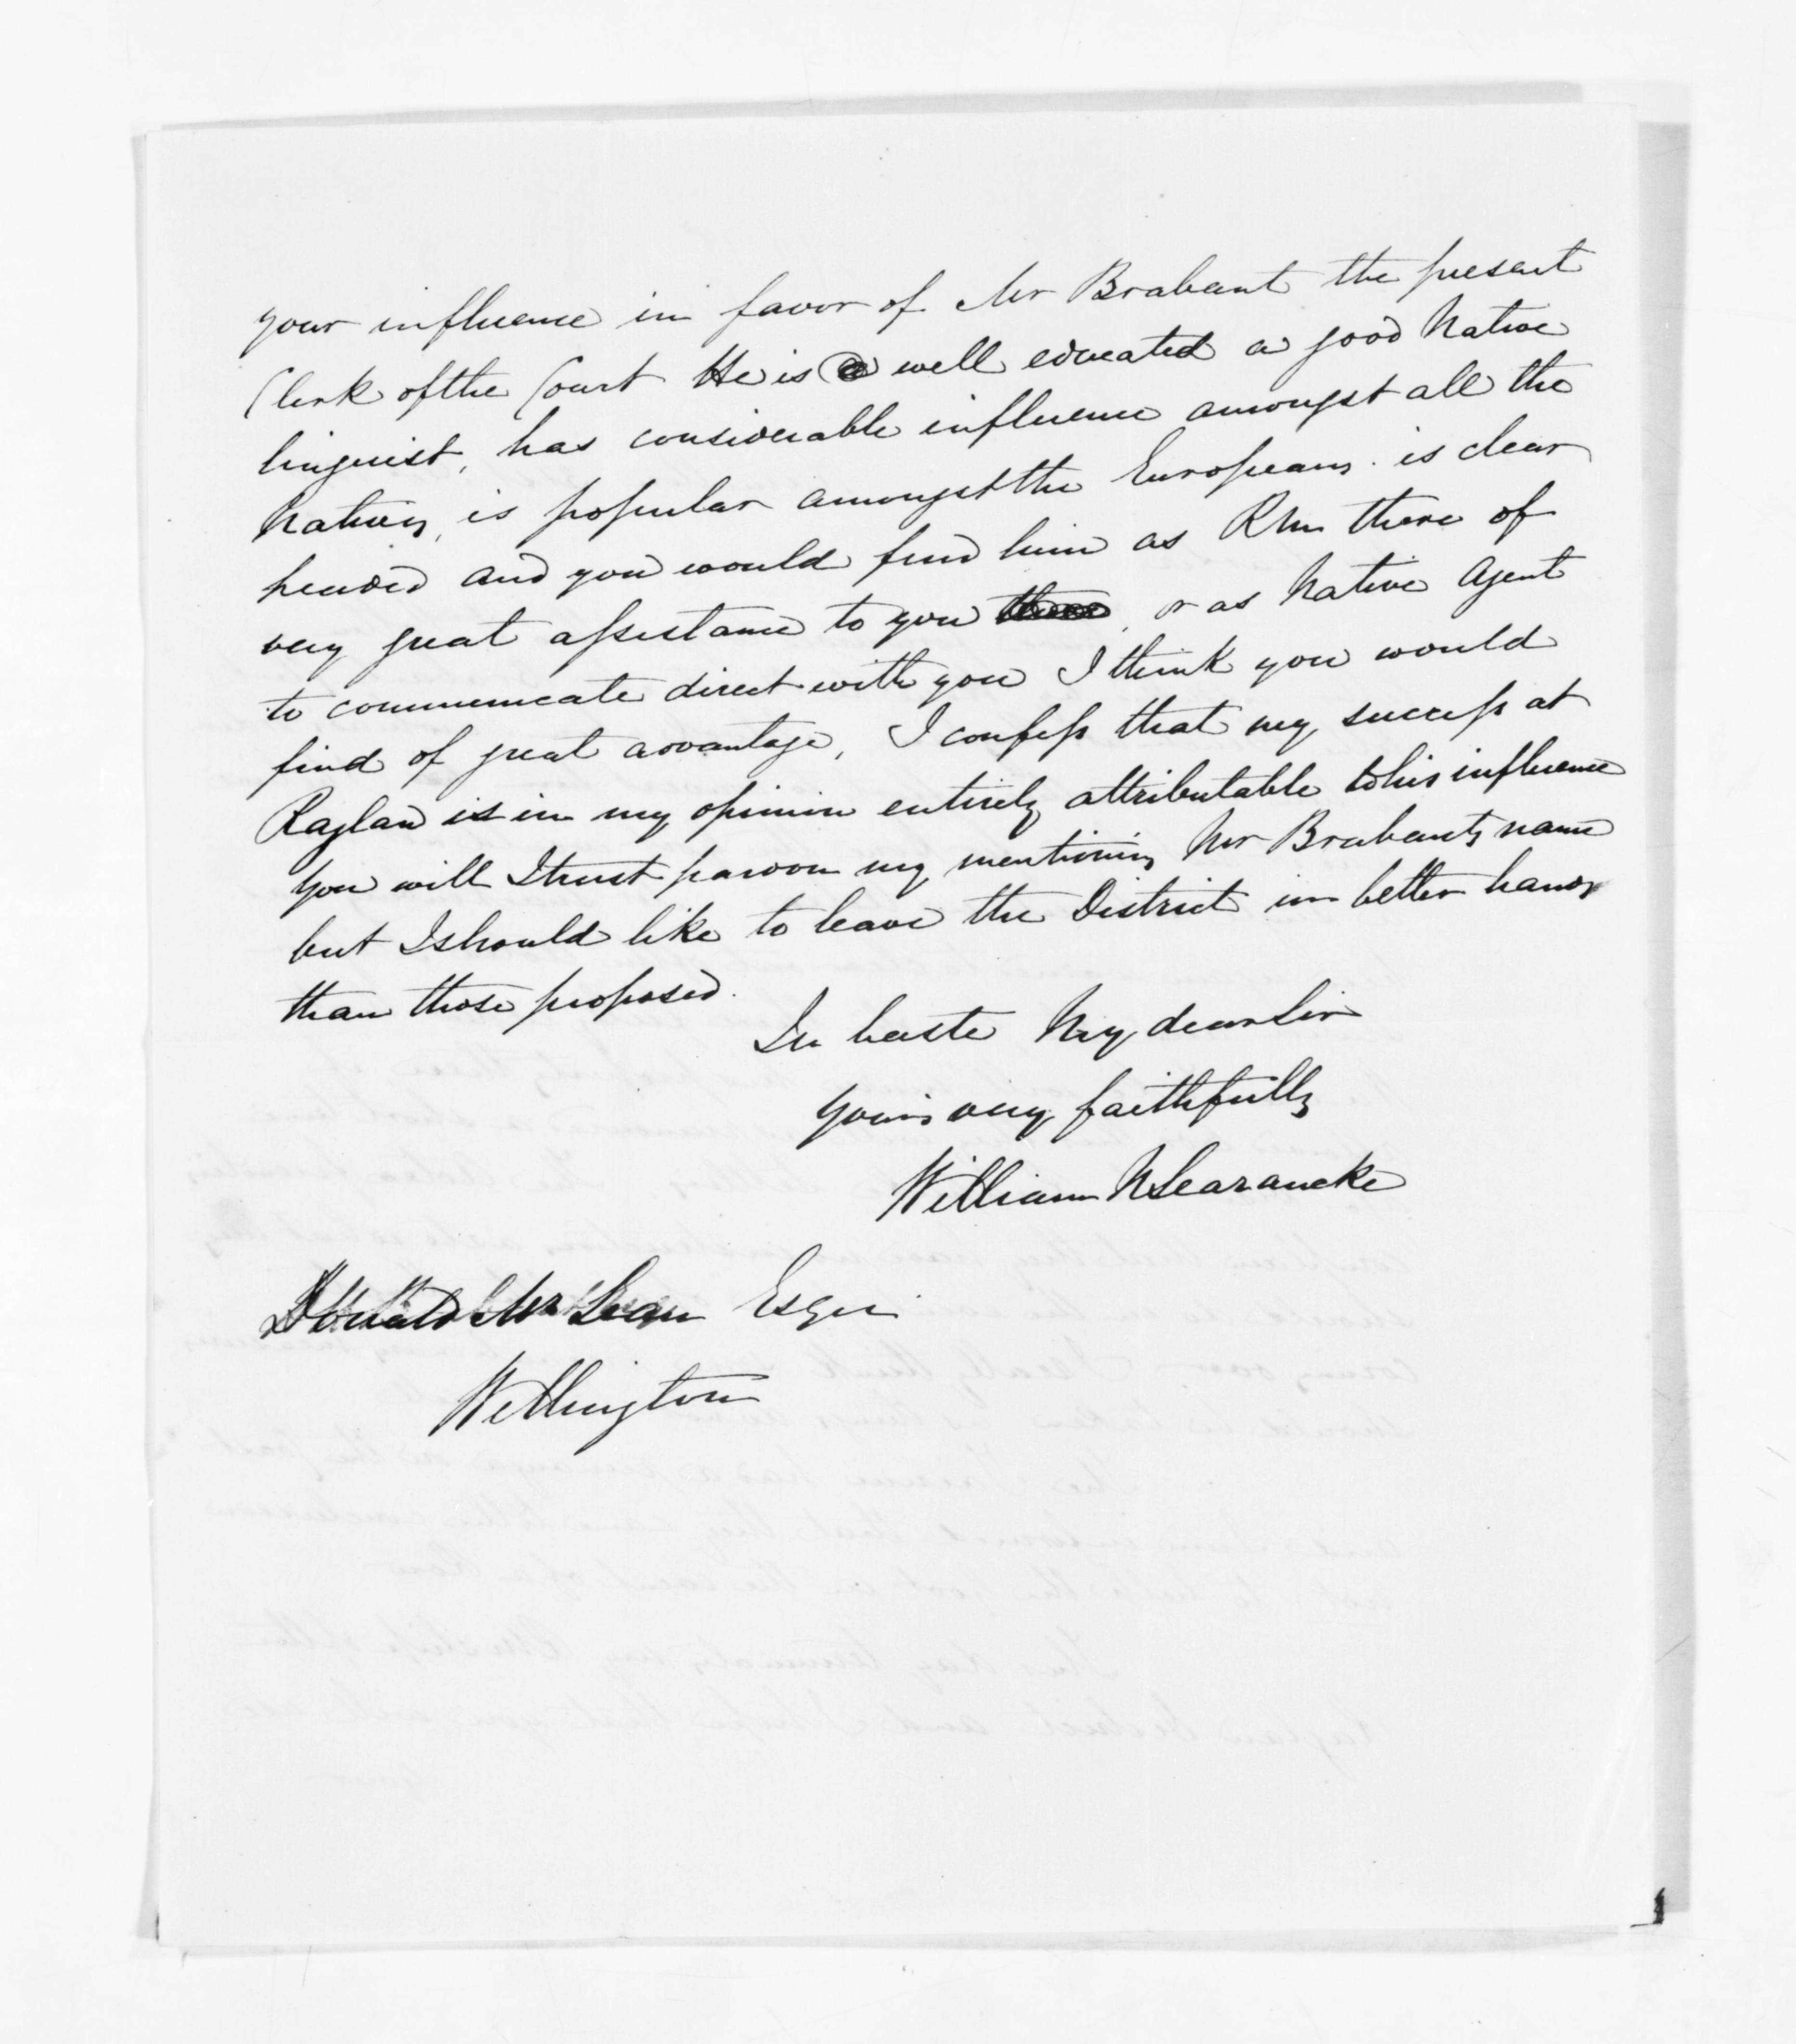 your influence in favor of Mr Brabant the present
Clerk of the Court He is well educated a good Native
linguist, has considerable influence amongst all the
Natives, is popular amongst the Europeans. is clear
headed and you would find him as RM there of
very great assistance to you there, or as Native Agent
to communicate direct with you I think you would
find of great advantage, I confess that my success at
Raglan is in my opinion entirely attributable to his influence
You will I trust pardon my mentioning Mr Brabants name
but I should like to leave the District in better hands
than those proposed.
In haste My dear Sir
Yours very faithfully
William N Searancke
Donald McLean Esqre
Wellington